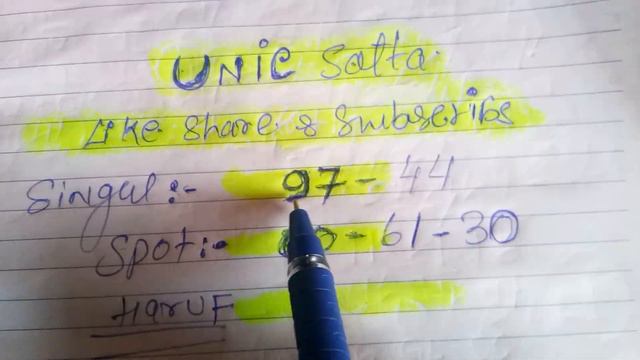 UNIC Satta.
Like Share & Subscribs
Singal :- 97 - 44
Spot :- - 61 - 30
Haruf